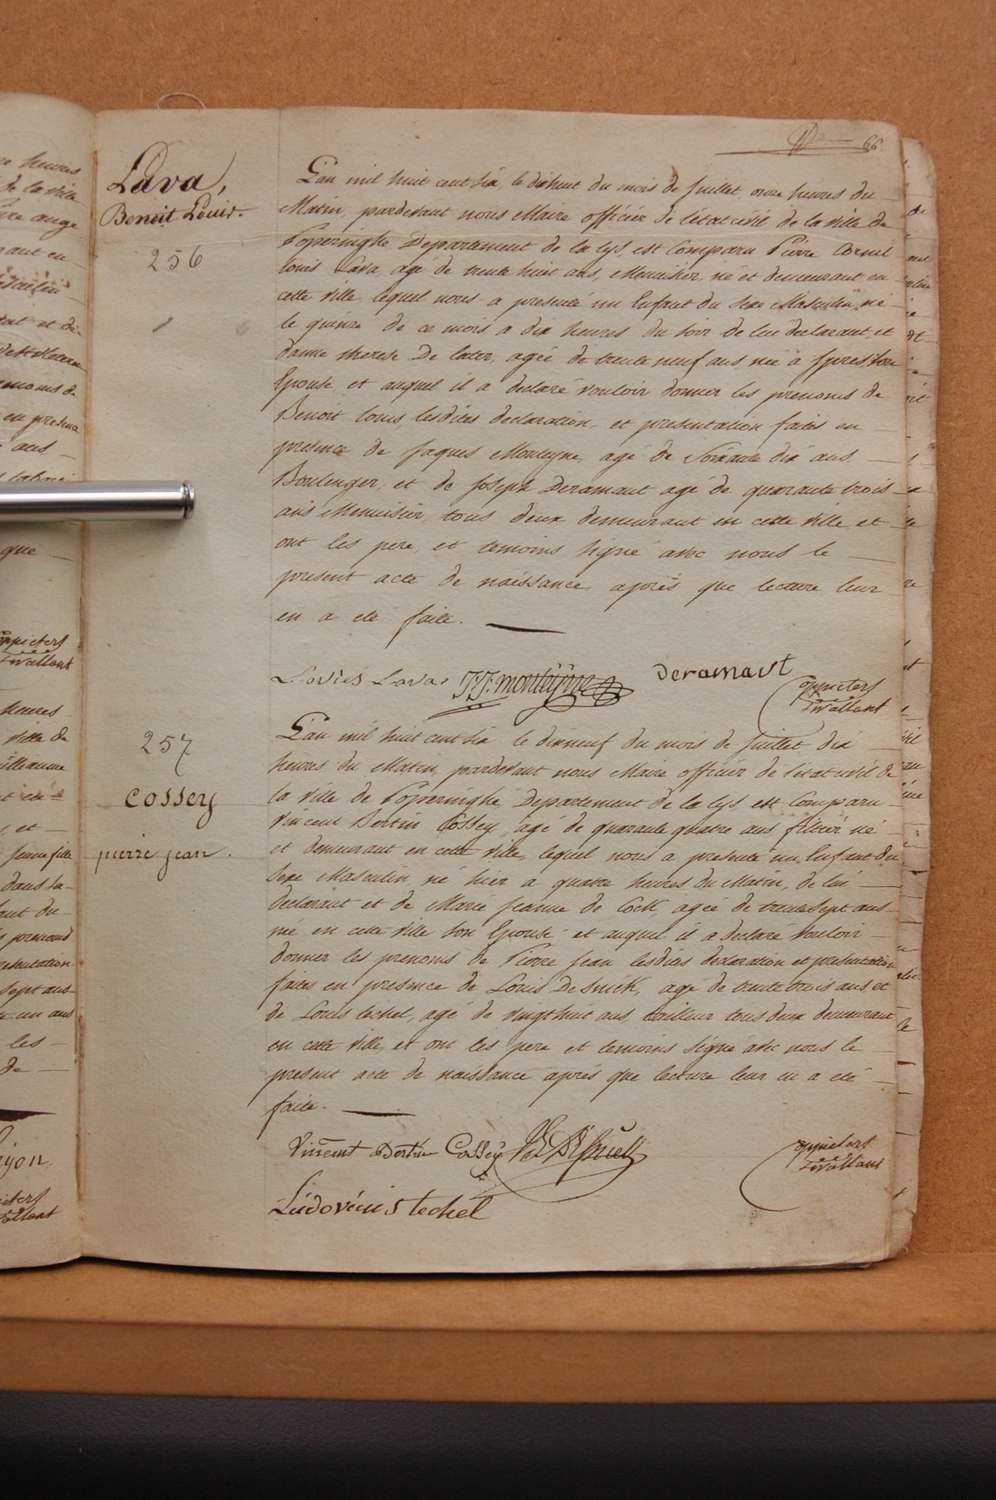 66
Lava,
Benoit Louis.
256
L'an mil huit cent six, le dixhuit du mois de Juillet onze heures du
Matin, pardevant nous Maire officier de l'état civil de la ville de
Poperinghe Departement de la Lys, est Comparu Pierre Corneil
Louis Lava, agé de trente huit ans, Menuisier, né et demeurant en
cette ville, lequel nous a presenté un Enfant du sexe Masculin, né
le quinze de ce mois a dix heures du soir de lui declarant et
dame therese De Cater, agée de trente neuf ans née à Ypres son
Epouse, et auquel il a declaré vouloir donner les prenoms de
Benoit Louis lesdites declaration, et presentation faites en
presence de Jaques Monteyne, agé de Soixante dix ans,
Boulenger, et de Joseph Deramaut agé de quarante trois
ans Menuisier, tous deux demeurant en cette ville et
ont les pere, et temoins signé avec nous le
present acte de naissance, après que lecture leur
en a eté faite.
Lovies Lava JF monteÿne Deramaut
257
Cossey
pierre jean.
L'an mil huit cent six le dixneuf du mois de Juillet dix
heures du Matin, pardevant nous Maire officier de l'etat civil de
la ville de Poperinghe, Departement de la Lys est Comparu
Vincent Bertin Cossey, agé de quarante quatre ans né
et demeurant en cette ville, lequel nous a presenté un Enfant du
Sexe Masculin, né hier a quatre heures du Matin, de lui
declarant et de Marie Jeanne de Cock, agée de trente sept ans
née en cette ville son Epouse et auquel il a declaré vouloir
donner les prenoms de Pierre Jean lesdites declaration et presentation
faites en presence de Louis Desnick, agé de trente trois ans et
de Louis techel, agé de vingt huit ans tailleur tous deux demeurant
en cette ville, et ont les pere et temoins signé avec nous le
present acte de naissance après que lecture leur en a eté
faite.
Vincent Bertin Cossey
Ludovicus techel